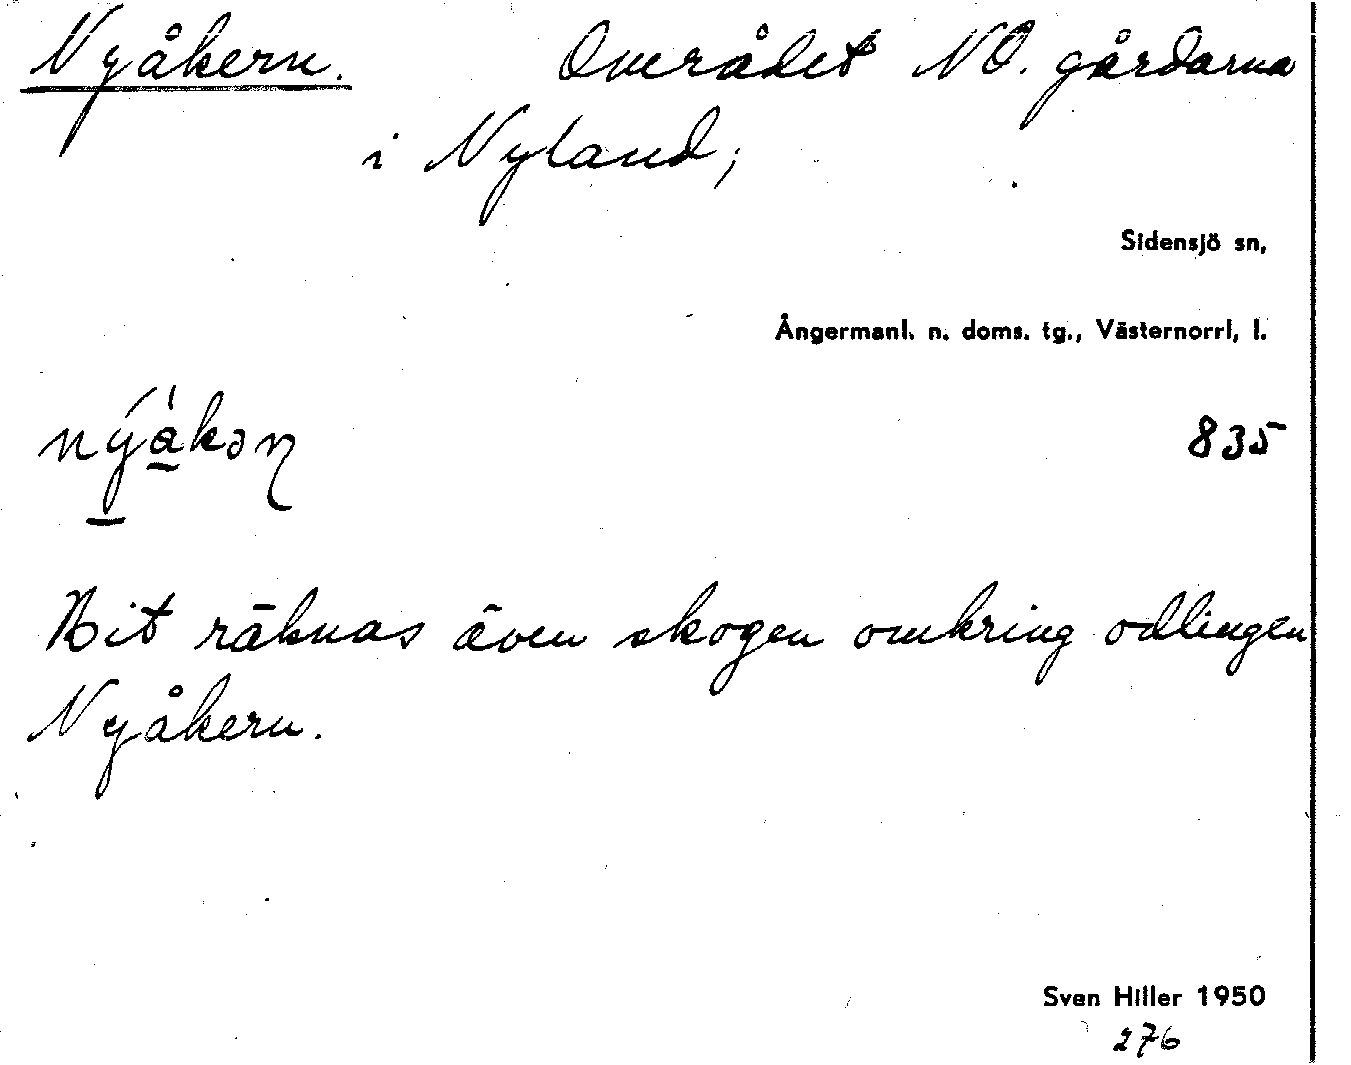 Nyåkern. Området NO. gårdarna
i Nyland;
Sidensjö sn,
Ångermanl. n. doms. tg., Västernorrl, l.
835
Hit räknas även skogen omkring odlingen
Nyåkern.
Sven Hiller 1950
276